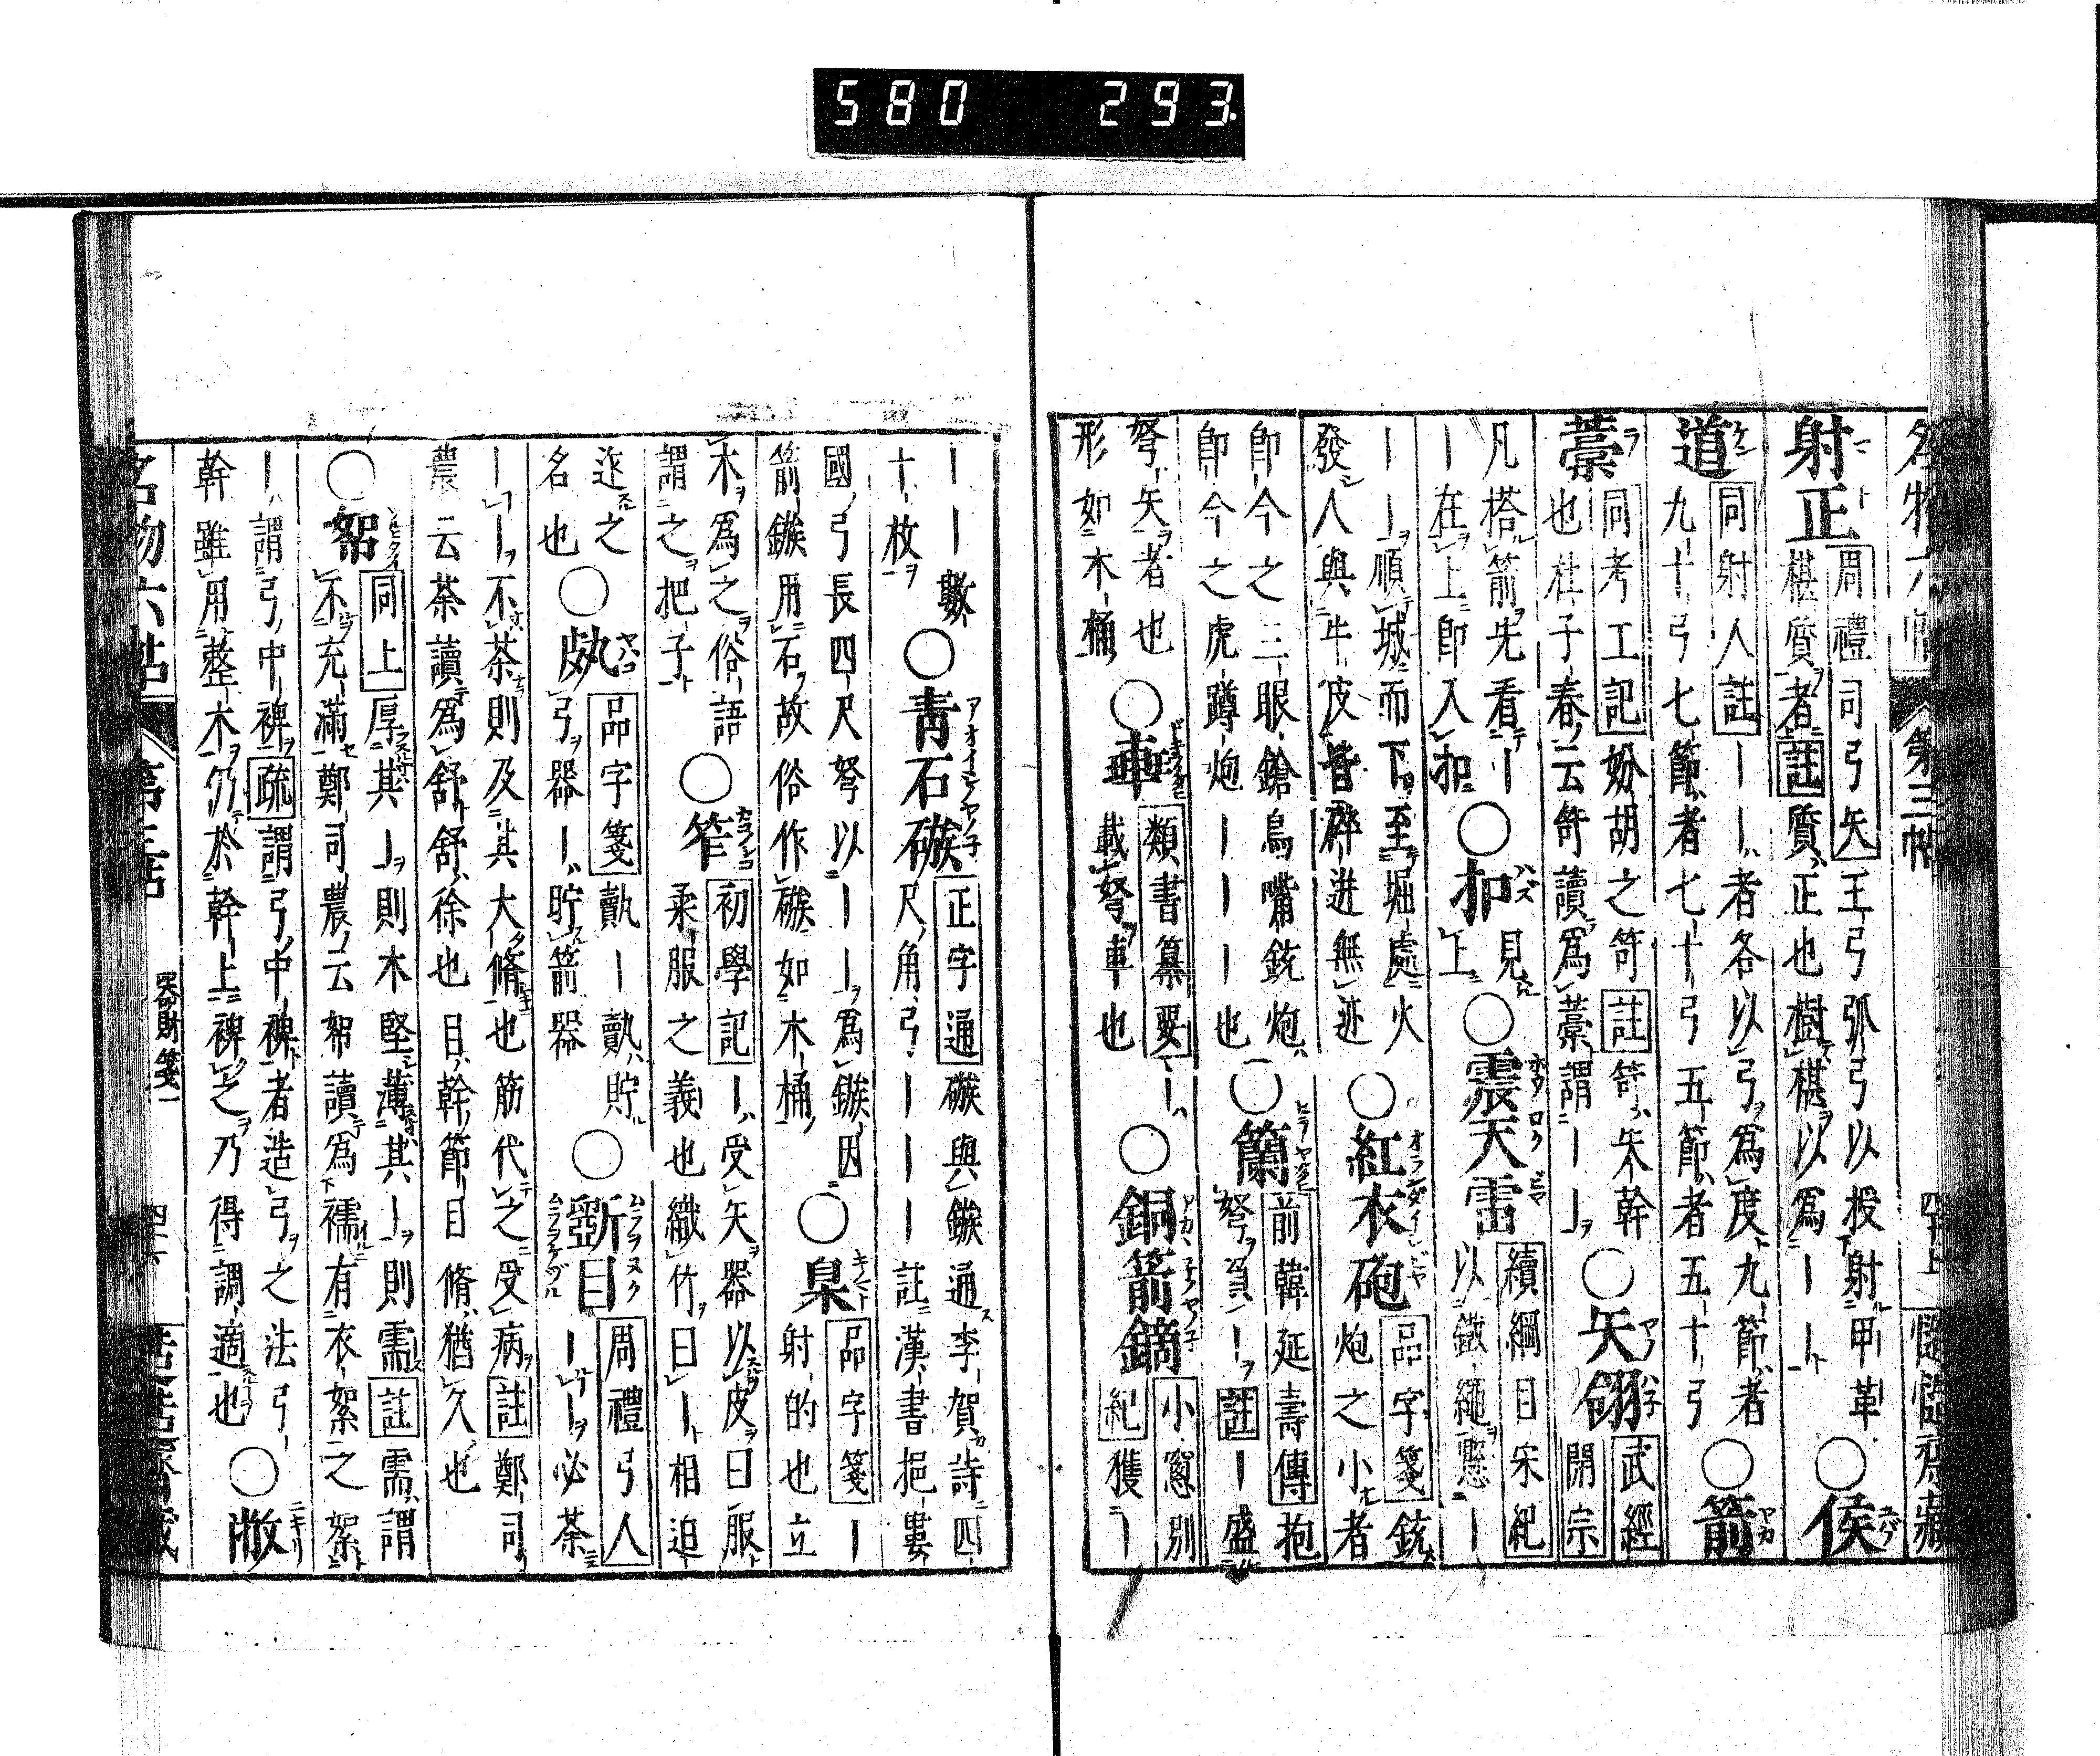 580 293.
名物六帖 第三帖 四十上
射正 周禮司弓矢王弓弧弓以授射甲革
椹質者註質正也樹椹以爲——○侯
道 同射人註——者各以弓爲度九節者
九十弓七節者七十弓五節者五十弓○箭
藁 同考工記妢胡之笴註笴矢幹
也杜子春云笴讀爲藁謂——○矢翎 武經開宗
凡搭箭先看—
—在上卽入扣○扣 見上○震天雷 續綱目宋紀
以鐵繩懸—
——順城而下至堀處火
發人與牛皮皆碎迸無迹○紅衣砲 品字箋銃
炮之小者
卽今之三眼鎗鳥嘴銃炮
卽今之虎蹲炮———也○籣 前韓延壽傳抱
弩負—註—盛
弩矢者也
形如木桶○車 類書纂要—
載弩車也○銅箭鏑 小窓別紀獲—
———數
十枚○青石碳 正字通碳與鏃通李賀詩四
尺角弓———註漢書挹婁
國弓長四尺弩以——爲鏃因
箭鏃用石故俗作碳如木桶○臬 品字箋—
射的也立
木爲之俗語
謂之把子○笮 初學記—受矢器以皮曰服
柔服之義也織竹曰—相迫
迮之
名也 品字箋
弓器—貯箭器○斲目 周禮弓人
——必荼
——不荼則及其大脩也筋代之受病註鄭司
農云荼讀爲舒舒徐也目幹節目脩猶久也
○帤 同上厚其—則木堅薄其—則需註需謂
不充滿鄭司農云帤讀爲襦有衣絮之絮
—謂弓中裨疏謂弓中裨者造弓之法弓
幹雖用整木仍於幹上裨之乃得調適也○敝
名物六帖 第三帖